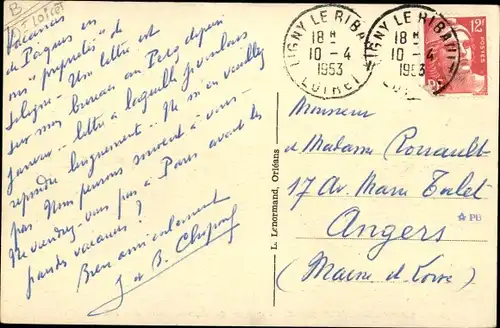 B
Vacances
de Pâques en
ma "propriété" de
Sologne - Une lettre est
sur mon bureau au Pecq depuis
Janvier - lettre à laquelle je voulais
répondre longuement. Ne m'en veuillez
pas. Nous pensons souvent à vous.
Ne viendrez-vous pas à Paris avant les
grandes vacances ?
Bien amicalement
J et B.
L. Lenormand, Orléans
LIGNY LE RIBAULT
18 H
10 - 4
1953
LOIRET
LIGNY LE RIBAULT
18 H
10 - 4
1953
12F
POSTES
Monsieur
et Madame Perrault
17 Av. Marie Talet
Angers
(Maine et Loire)
PB